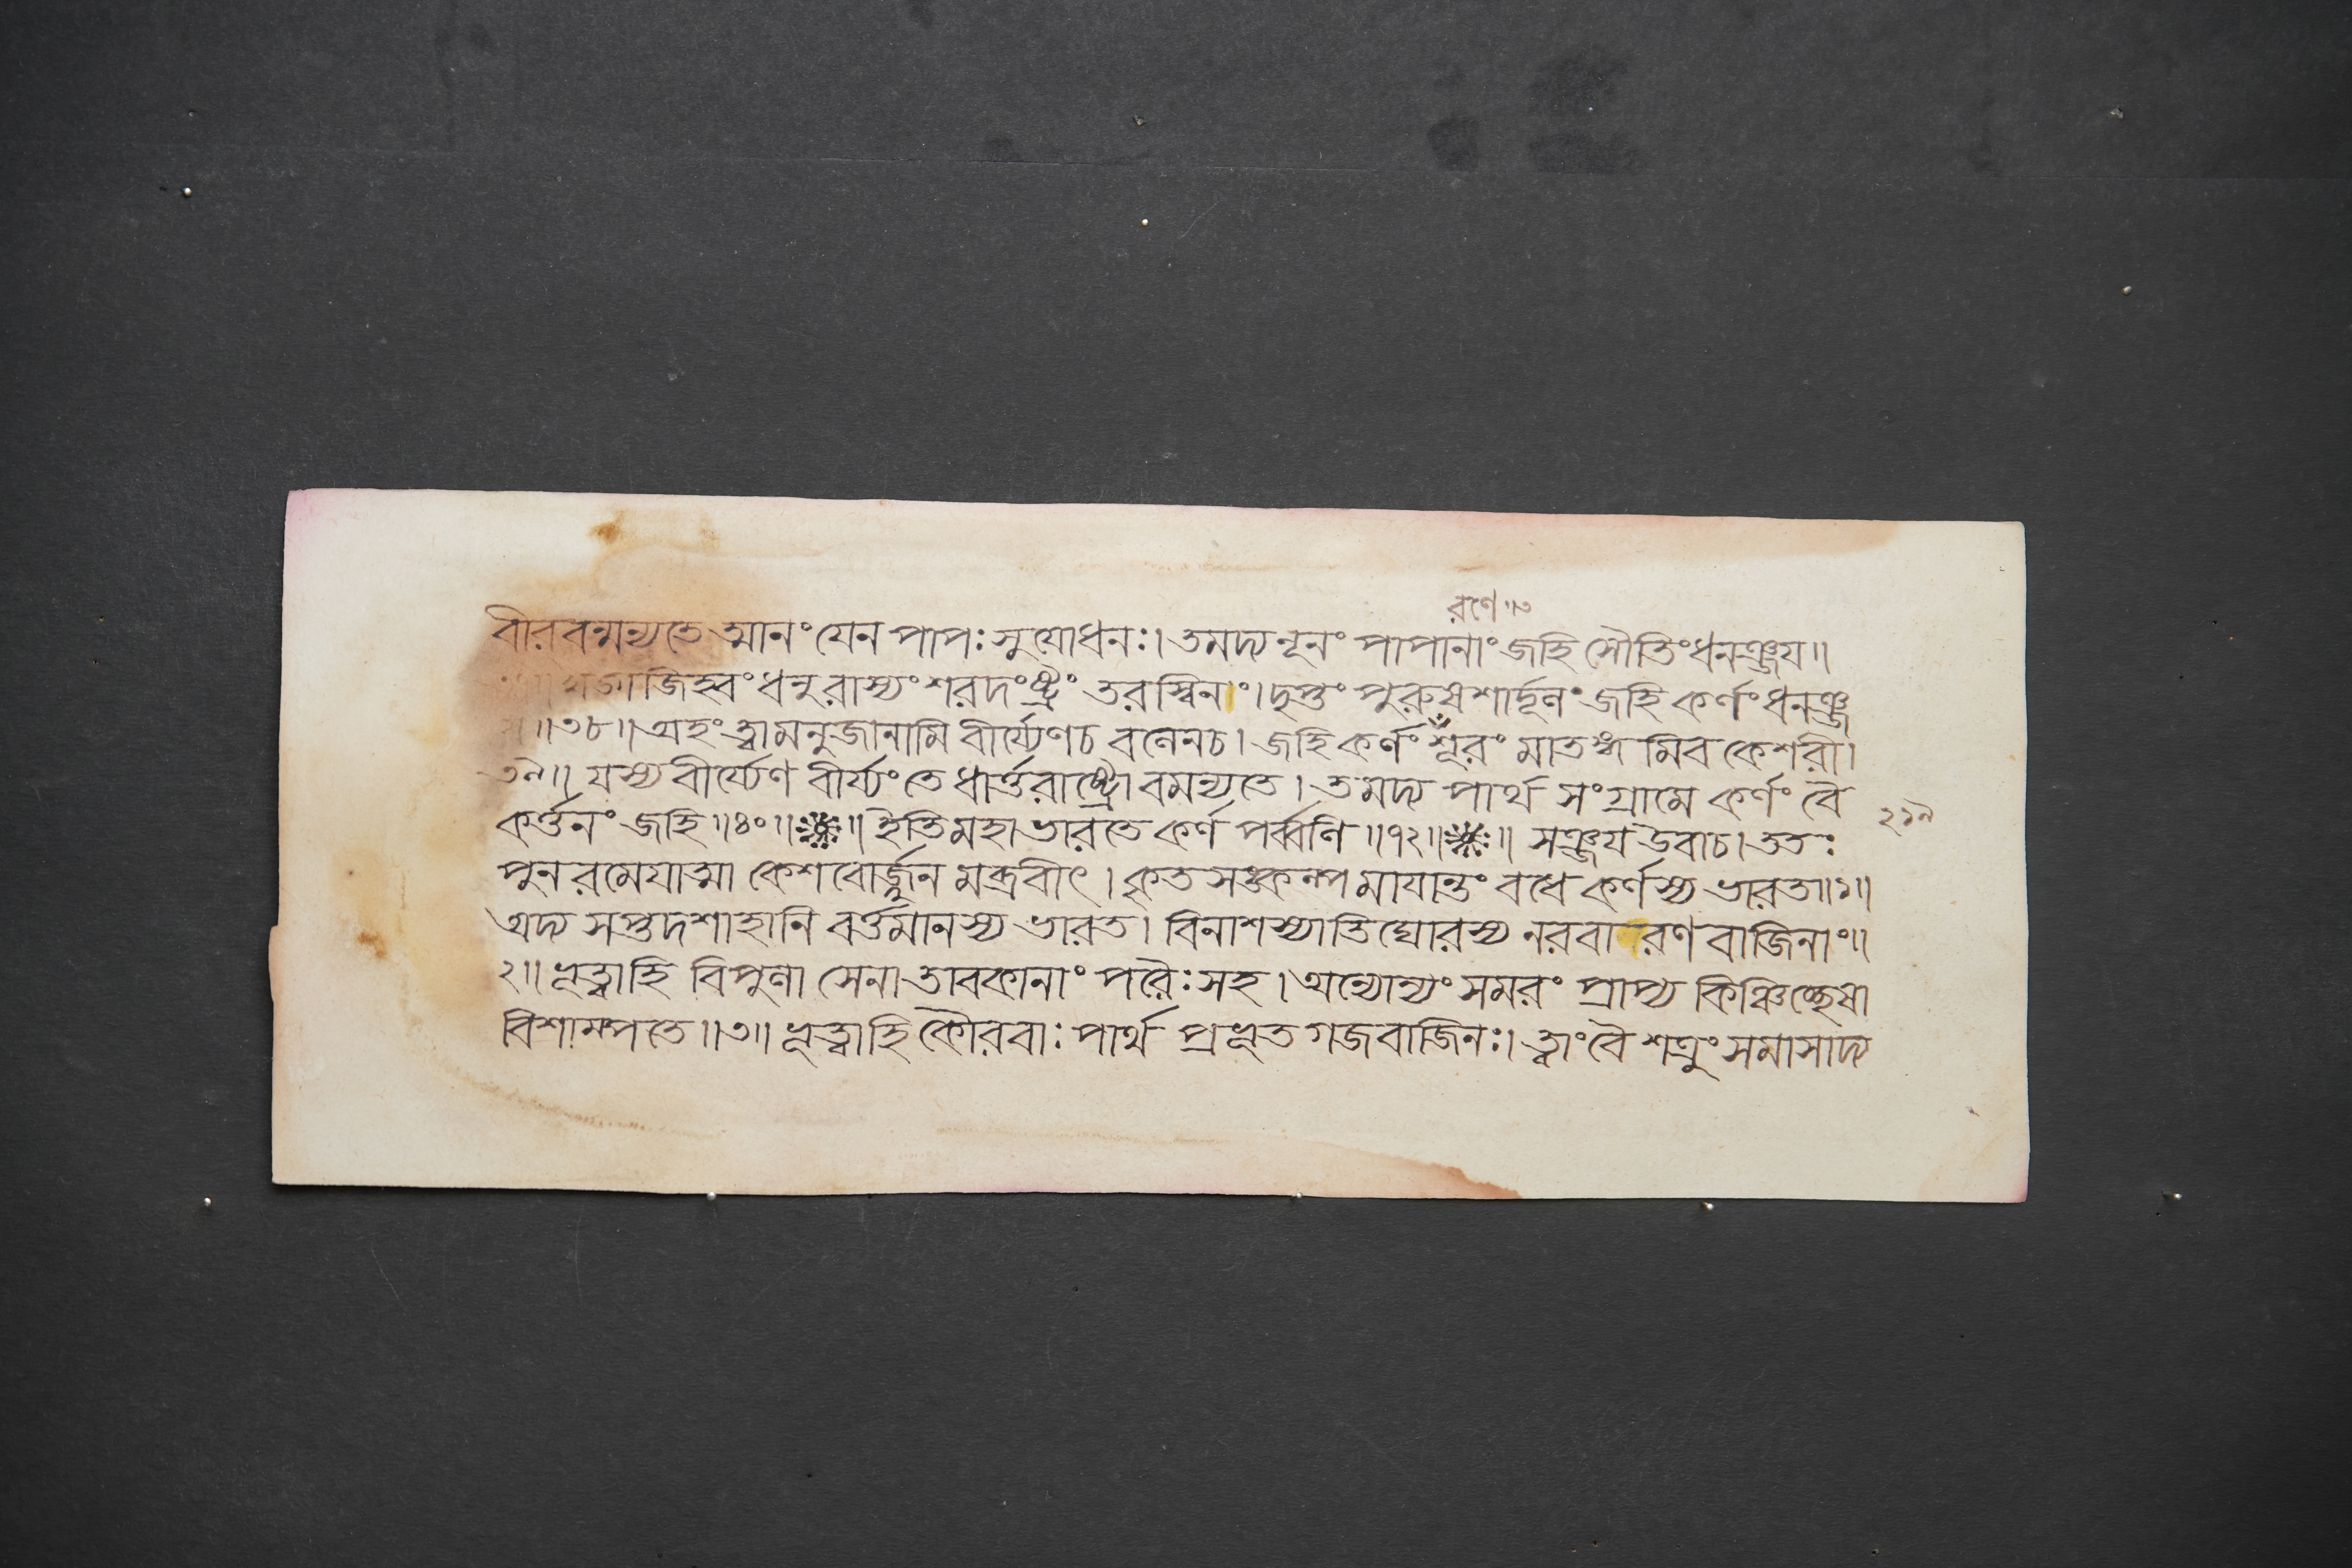 রণে॥৩
বীরবন্মন্যতে আনং যেন পাপঃ সুযোধনঃ। তমদ্য নূনং পাপানাং জহি সৌতিং ধনঞ্জয॥
খড্গজিহ্বং ধনুরাস্যং শরদংষ্ট্রং তরস্বিনাং। দৃপ্তং পুরুষশার্দ্দূলং জহি কর্ণং ধনঞ্জ
য॥৩৮॥ অহং ত্বামনুজানামি বীর্য্যেণচ বলেনচ। জহি কর্ণং শূরং মাতঙ্গ মিব কেশরী।
৩৯॥ যস্য বীর্য্যেণ বীর্য্যং তে ধার্ত্তরাষ্ট্রো বমন্যতে। তমদ্য পার্থ সংগ্রামে কর্ণং বৈ
কর্ত্তনং জহি॥৪০॥ ॥ ইতি মহাভারতে কর্ণ পর্ব্বণি॥৭২॥ ॥ সঞ্জয উবাচ। ততঃ
পুন রমেযাত্মা কেশবোর্জ্জুন মব্রবীৎ। কৃত সঙ্কল্প মাযান্তং বধে কর্ণস্য ভারত॥১॥
অদ্য সপ্তদশাহানি বর্ত্তমানস্য ভারত। বিনাশস্যাতিঘোরস্য নরবারণ বাজিনাং॥
২॥ ভূত্বাহি বিপুলা সেনা তাবকানাং পরৈঃ সহ। অন্যোন্যং সমরং প্রাপ্য কিঞ্চিচ্ছেষা
বিশাম্পতে॥৩॥ ভূত্বাহি কৌরবাঃ পার্থ প্রভূত গজবাজিনঃ। ত্বাং বৈ শত্রুং সমাসাদ্য
২১৯